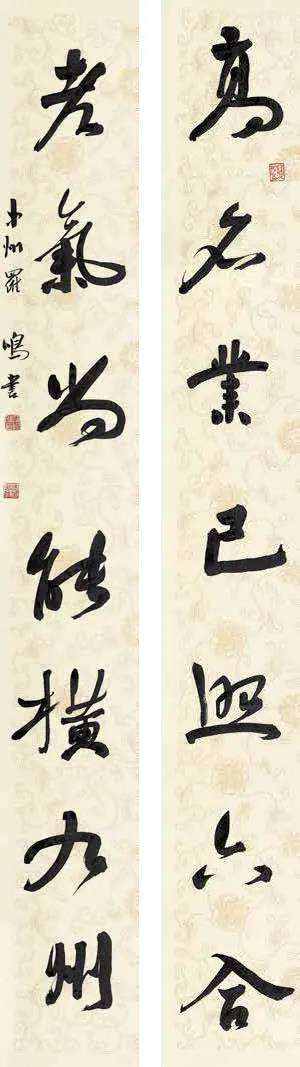 高名業已照六合
老氣尚能橫九州
中州羅鳴書